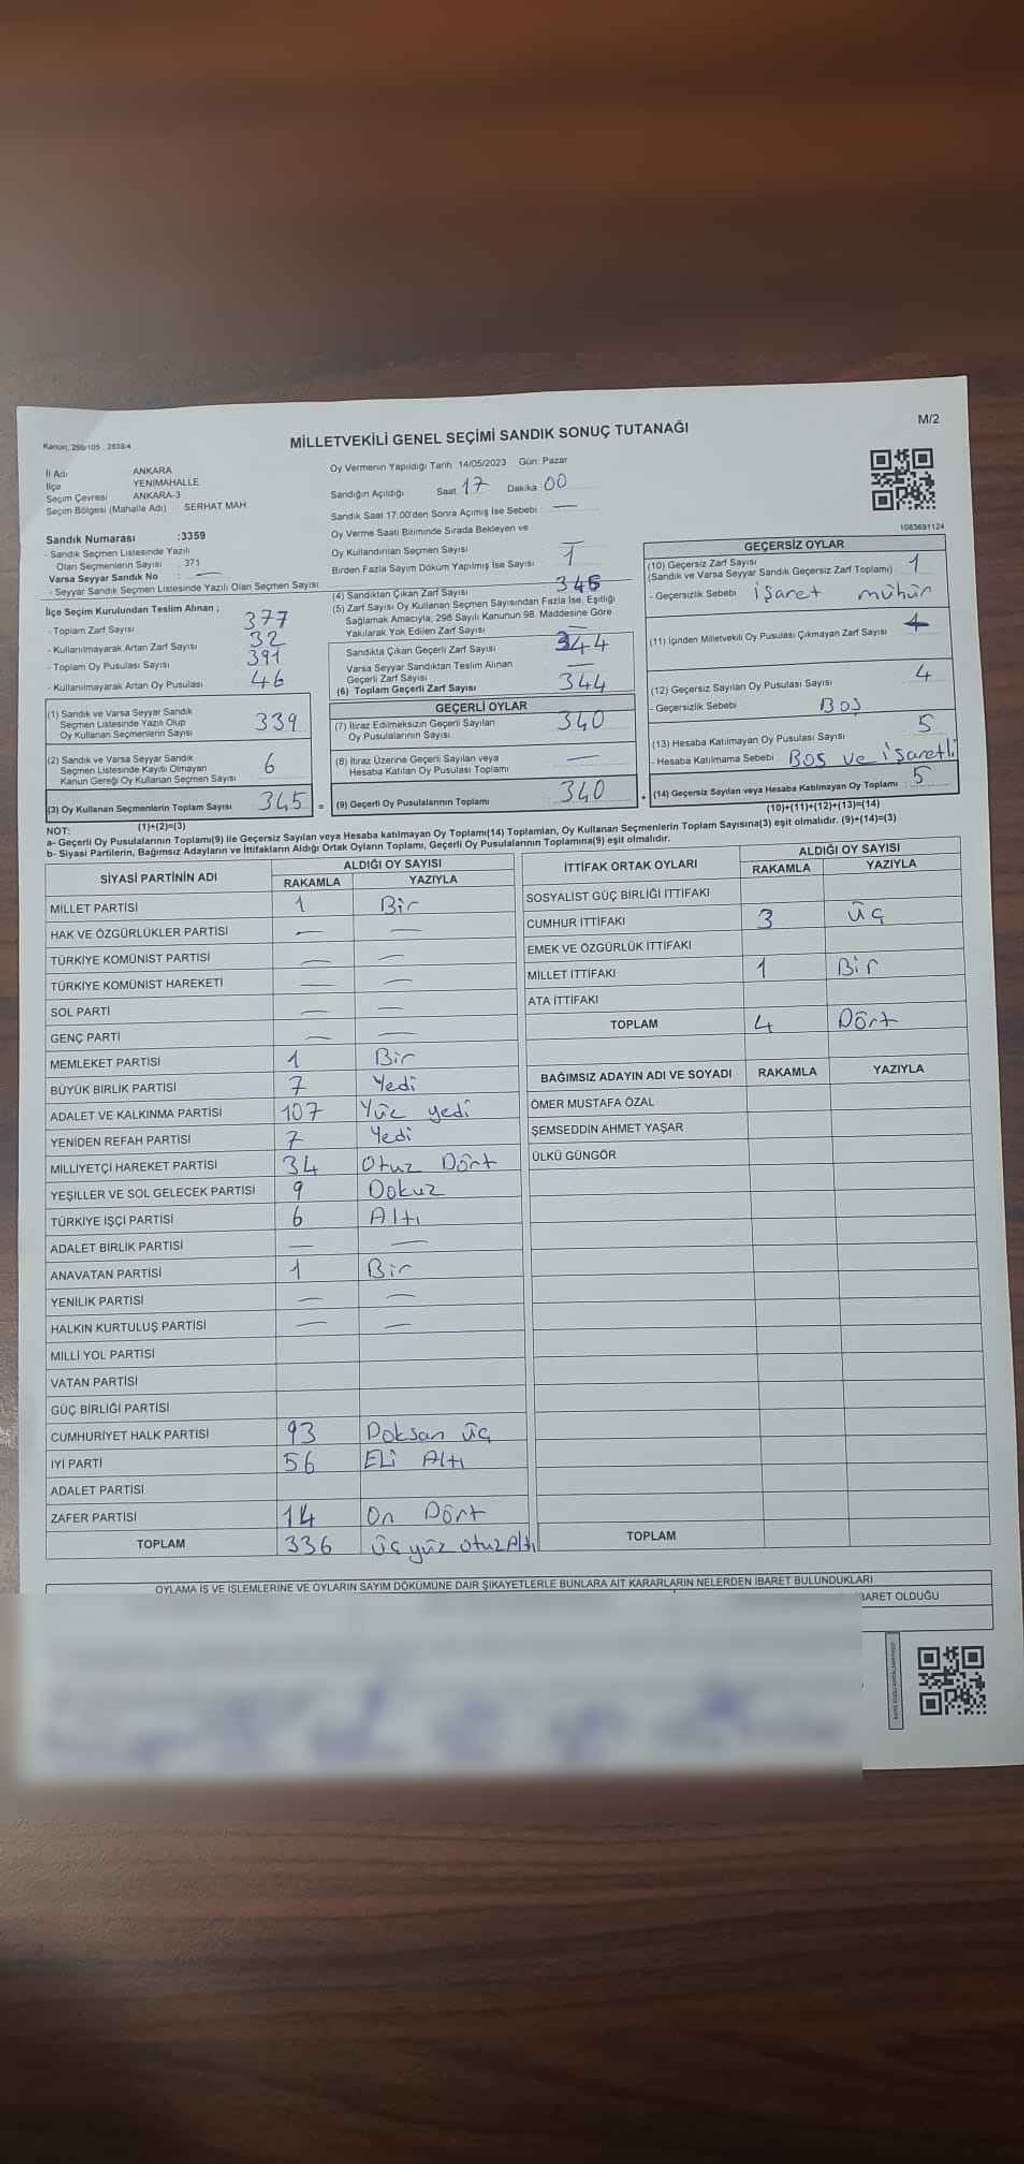 Kanun: 298/105 - 2839/4
MİLLETVEKİLİ GENEL SEÇİMİ SANDIK SONUÇ TUTANAĞI
M/2
İl Adı ANKARA
İlçe YENİMAHALLE
Seçim Çevresi ANKARA-3
Seçim Bölgesi (Mahalle Adı) SERHAT MAH.
Oy Vermenin Yapıldığı Tarih :14/05/2023 Gün: Pazar
Sandığın Açıldığı Saat 17 Dakika 00
Sandık Saat 17.00'den Sonra Açılmış İse Sebebi : —
Oy Verme Saati Bitiminde Sırada Bekleyen ve
Oy Kullandırılan Seçmen Sayısı —
Birden Fazla Sayım Döküm Yapılmış İse Sayısı : 1
1083691124
Sandık Numarası :3359
- Sandık Seçmen Listesinde Yazılı
Olan Seçmenlerin Sayısı : 371
Varsa Seyyar Sandık No : —
- Seyyar Sandık Seçmen Listesinde Yazılı Olan Seçmen Sayısı
İlçe Seçim Kurulundan Teslim Alınan ;
- Toplam Zarf Sayısı 377
- Kullanılmayarak Artan Zarf Sayısı 32
- Toplam Oy Pusulası Sayısı 391
- Kullanılmayarak Artan Oy Pusulası 46
(1) Sandık ve Varsa Seyyar Sandık
Seçmen Listesinde Yazılı Olup
Oy Kullanan Seçmenlerin Sayısı 339
(2) Sandık ve Varsa Seyyar Sandık
Seçmen Listesinde Kayıtlı Olmayan
Kanun Gereği Oy Kullanan Seçmen Sayısı 6
(3) Oy Kullanan Seçmenlerin Toplam Sayısı 345 =
(1)+(2)=(3)
(4) Sandıktan Çıkan Zarf Sayısı 345
(5) Zarf Sayısı Oy Kullanan Seçmen Sayısından Fazla İse, Eşitliği
Sağlamak Amacıyla, 298 Sayılı Kanunun 98. Maddesine Göre
Yakılarak Yok Edilen Zarf Sayısı —
Sandıkta Çıkan Geçerli Zarf Sayısı 344
Varsa Seyyar Sandıktan Teslim Alınan
Geçerli Zarf Sayısı —
(6) Toplam Geçerli Zarf Sayısı 344
GEÇERLİ OYLAR
(7) İtiraz Edilmeksizin Geçerli Sayılan
Oy Pusulalarının Sayısı 340
(8) İtiraz Üzerine Geçerli Sayılan veya
Hesaba Katılan Oy Pusulası Toplamı —
(9) Geçerli Oy Pusulalarının Toplamı 340 +
GEÇERSİZ OYLAR
(10) Geçersiz Zarf Sayısı
(Sandık ve Varsa Seyyar Sandık Geçersiz Zarf Toplamı) 1
- Geçersizlik Sebebi işaret mühür
(11) İçinden Milletvekili Oy Pusulası Çıkmayan Zarf Sayısı
(12) Geçersiz Sayılan Oy Pusulası Sayısı 4
- Geçersizlik Sebebi Boş
(13) Hesaba Katılmayan Oy Pusulası Sayısı 5
- Hesaba Katılmama Sebebi Boş ve işaretli
(14) Geçersiz Sayılan veya Hesaba Katılmayan Oy Toplamı : 5
(10)+(11)+(12)+(13)=(14)
NOT:
a- Geçerli Oy Pusulalarının Toplamı(9) ile Geçersiz Sayılan veya Hesaba katılmayan Oy Toplamı(14) Toplamları, Oy Kullanan Seçmenlerin Toplam Sayısına(3) eşit olmalıdır. (9)+(14)=(3)
b- Siyasi Partilerin, Bağımsız Adayların ve İttifakların Aldığı Ortak Oyların Toplamı, Geçerli Oy Pusulalarının Toplamına(9) eşit olmalıdır.
SİYASİ PARTİNİN ADI ALDIĞI OY SAYISI
RAKAMLA YAZIYLA
MİLLET PARTİSİ 1 Bir
HAK VE ÖZGÜRLÜKLER PARTİSİ — —
TÜRKİYE KOMÜNİST PARTİSİ — —
TÜRKİYE KOMÜNİST HAREKETİ — —
SOL PARTİ — —
GENÇ PARTİ — —
MEMLEKET PARTİSİ 1 Bir
BÜYÜK BİRLİK PARTİSİ 7 Yedi
ADALET VE KALKINMA PARTİSİ 107 Yüz yedi
YENİDEN REFAH PARTİSİ 7 Yedi
MİLLİYETÇİ HAREKET PARTİSİ 34 Otuz Dört
YEŞİLLER VE SOL GELECEK PARTİSİ 9 Dokuz
TÜRKİYE İŞÇİ PARTİSİ 6 Altı
ADALET BİRLİK PARTİSİ — —
ANAVATAN PARTİSİ 1 Bir
YENİLİK PARTİSİ — —
HALKIN KURTULUŞ PARTİSİ — —
MİLLİ YOL PARTİSİ
VATAN PARTİSİ
GÜÇ BİRLİĞİ PARTİSİ
CUMHURİYET HALK PARTİSİ 93 Doksan üç
İYİ PARTİ 56 Eli Altı
ADALET PARTİSİ
ZAFER PARTİSİ 14 On Dört
TOPLAM 336 üç yüz otuz Altı
İTTİFAK ORTAK OYLARI ALDIĞI OY SAYISI
RAKAMLA YAZIYLA
SOSYALİST GÜÇ BİRLİĞİ İTTİFAKI
CUMHUR İTTİFAKI 3 üç
EMEK VE ÖZGÜRLÜK İTTİFAKI
MİLLET İTTİFAKI 1 Bir
ATA İTTİFAKI
TOPLAM 4 Dört
BAĞIMSIZ ADAYIN ADI VE SOYADI RAKAMLA YAZIYLA
ÖMER MUSTAFA ÖZAL
ŞEMSEDDİN AHMET YAŞAR
ÜLKÜ GÜNGÖR
TOPLAM
OYLAMA İŞ VE İŞLEMLERİNE VE OYLARIN SAYIM DÖKÜMÜNE DAİR ŞİKAYETLERLE BUNLARA AİT KARARLARIN NELERDEN İBARET BULUNDUKLARI
BARET OLDUĞU